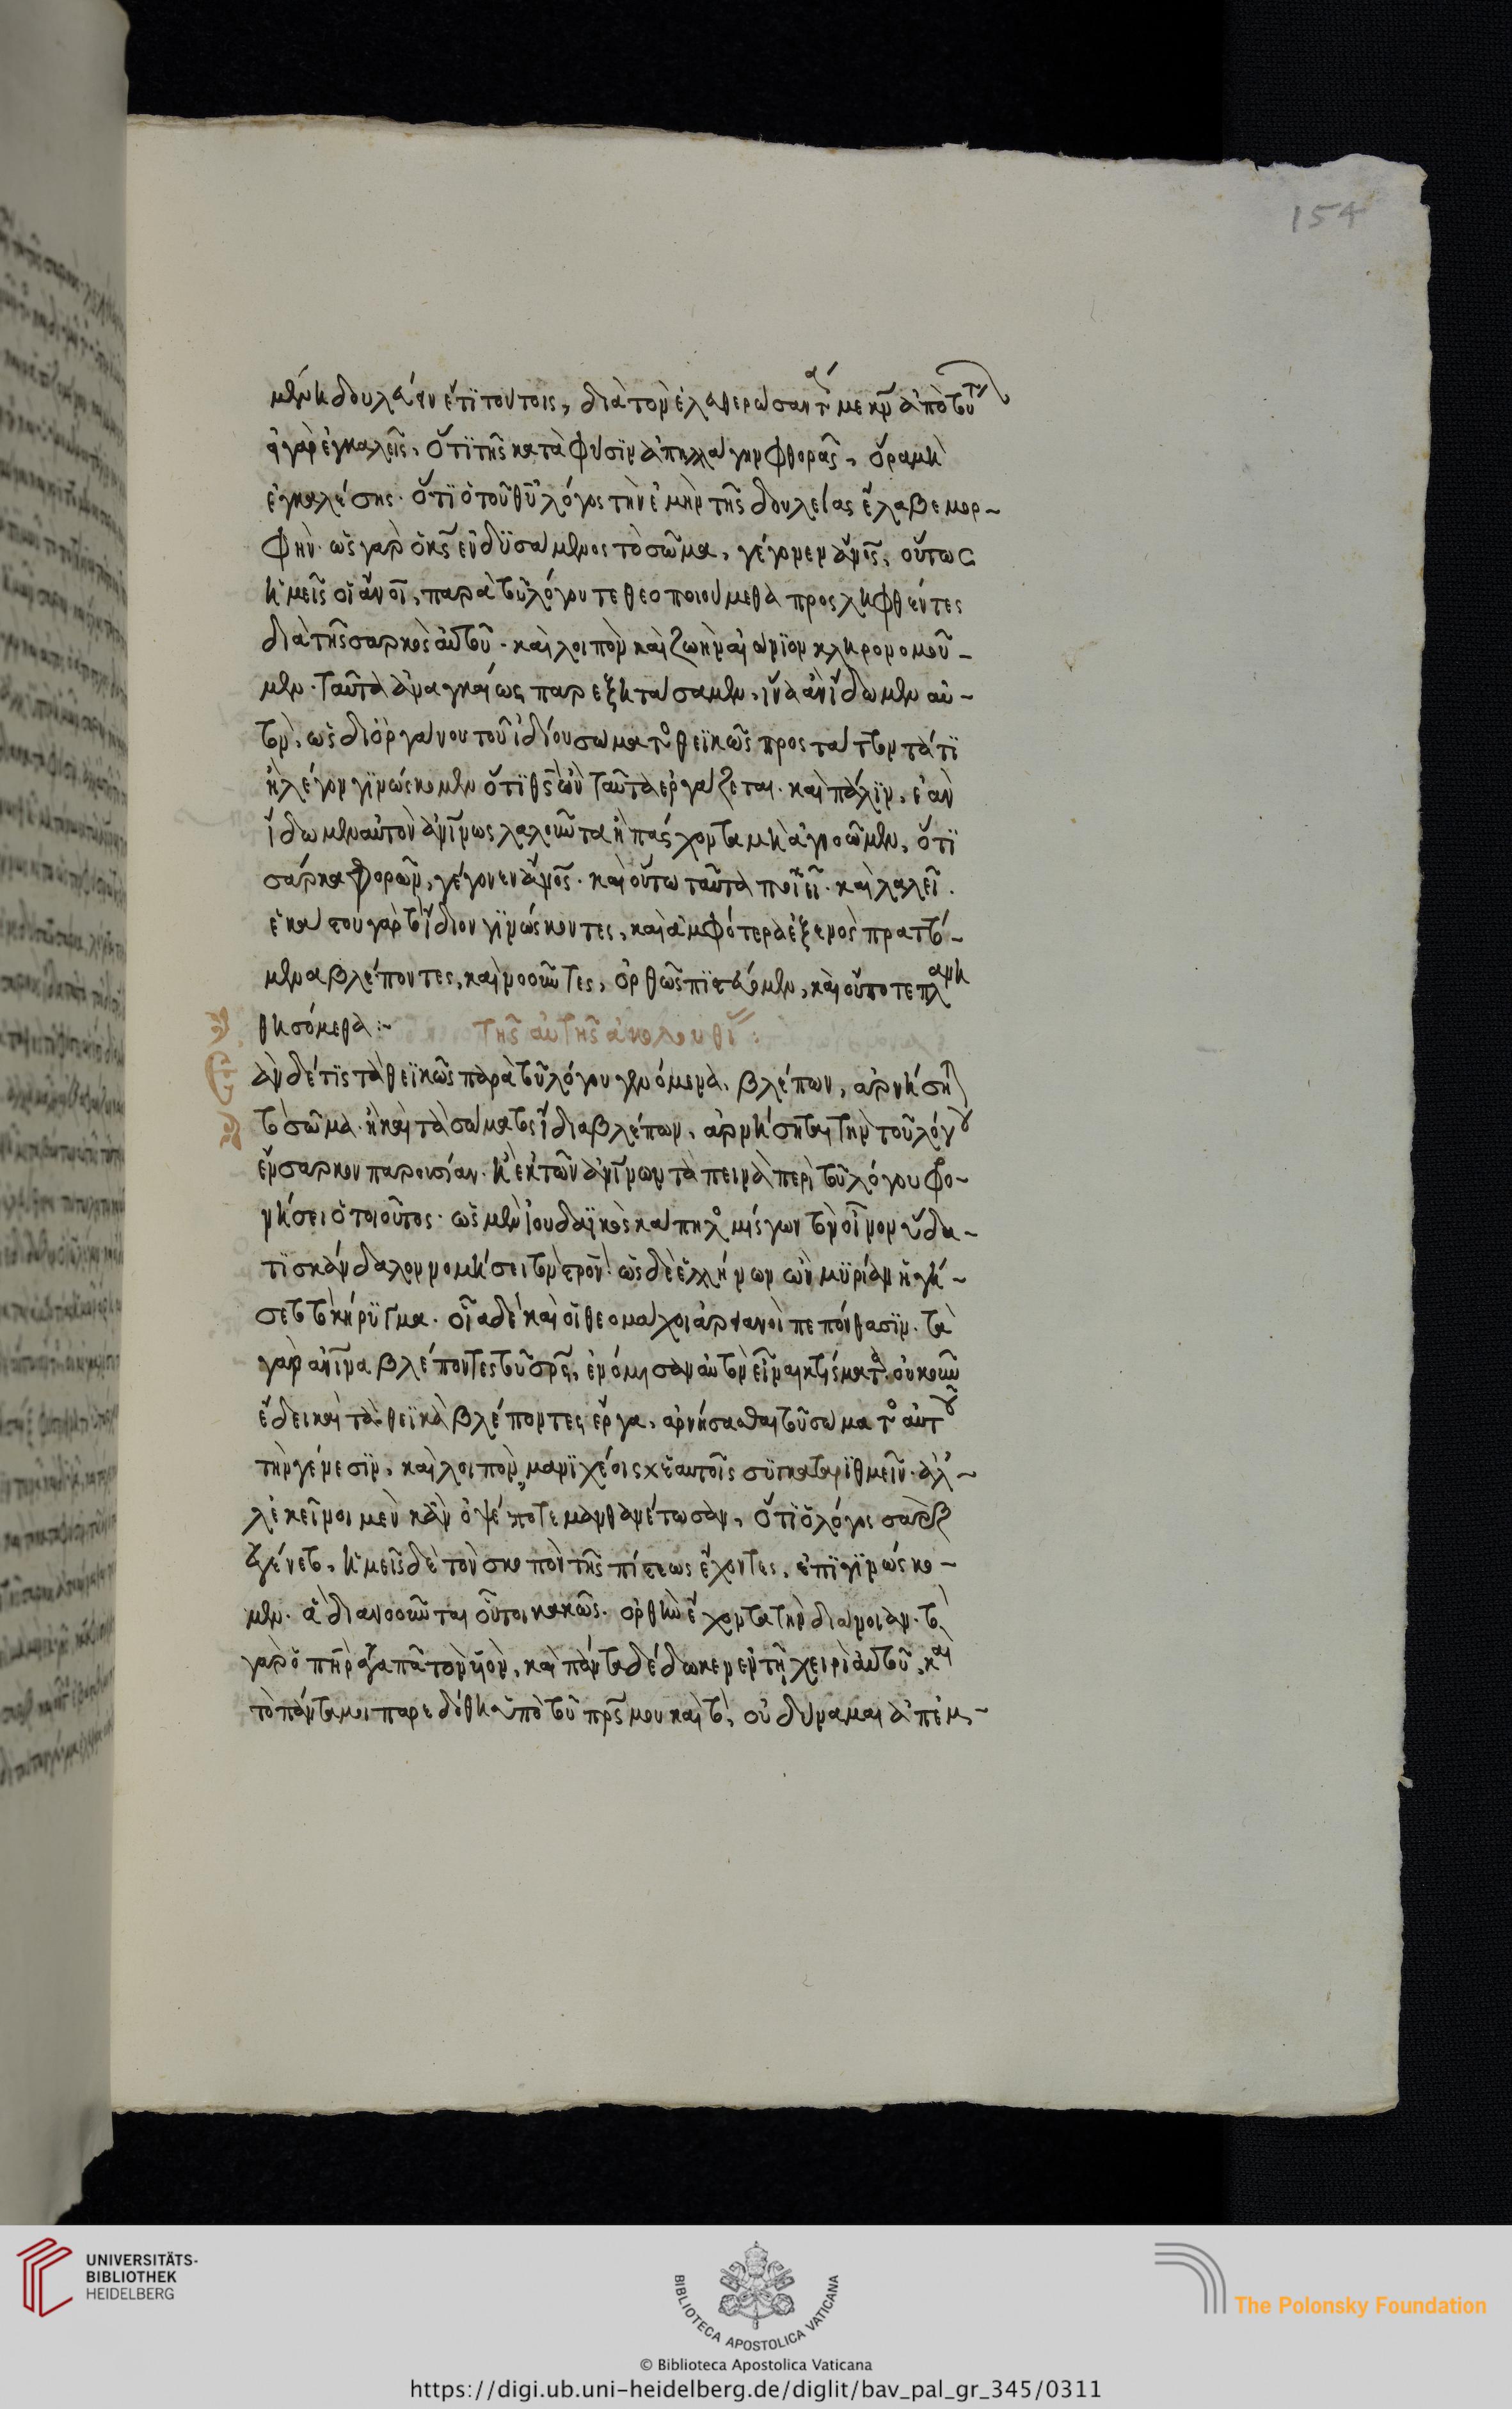 μὲν μὴ δουλεύειν ἔτϊ τουτοις, διὰ τὸν ἐλευθερώσαντά με κν ἀπὸ τούτων
εἰ γὰρ ἐγκαλεῖς, ὅτϊ τῆς κατὰ φύσϊν ἀπηλλάγην φθορᾶς, ὅρα μὴ
ἐγκαλέσης. ὅτϊ ὁ τοῦ θυ λόγος τὴν ἐμὴν τῆς δουλείας ἔλαβε μορ-
φὴν. ὡς γὰρ ὁ κς ἐνδϋσάμενος τὸ σῶμα, γέγονεν ἄνος, οὕτως
ἡμεῖς οἱ ἄνοι, παρὰ τοῦ λόγου τε θεοποιούμεθα προσληφθέντες
διὰ τῆς σαρκὸς αὐτοῦ. καὶ λοιπὸν καὶ ζωὴν αἰώνϊον κληρονομοῦ-
μεν. ταῦτα ἀναγκαίως παρεξητάσαμεν, ἵνα ἂν ἴδωμεν αὐ-
τὸν, ὡς δι' ὀργάνου τοῦ ἰδίου σώματος θεϊκῶς πράττοντά τϊ
ἢ λέγον γϊνώσκομεν ὅτϊ θς ὢν ταῦτα ἐργάζεται. καὶ πάλϊν, ἐὰν
ἴδωμεν αὐτὸν ἀνίνως λαλοῦντα ἢ πάσχοντα μὴ ἀγνοῶμεν, ὅτϊ
σάρκα φορῶν, γέγονεν ἄνος. καὶ οὕτω ταῦτα ποιεῖ. καὶ λαλεῖ.
ἑκάστου γὰρ τὸ ἴδιον γϊνώσκοντες, καὶ ἀμφότερα ἐξ ἑνὸς πραττό-
μενα βλέποντες, καὶ νοοῦντες, ὀρθῶς πϊστεύομεν, καὶ οὔποτε πλανη
θησόμεθα :~ τῆς αὐτῆς ἀκολουθί :
ἂν δέ τϊς τὰ θεϊκῶς παρὰ τοῦ λόγου γενόμενα, βλέπων, ἀρνήση
τὸ σῶμα. ἢ καὶ τὰ σώματος ἴδια βλέπων, ἀρνήσηται τὴν τοῦ λόγου
ἔνσαρκον παρουσίαν. ἢ ἐκ τῶν ἀνίνων ταπεινὰ περὶ τοῦ λόγου φρο-
νήσει ὁ τοιοῦτος. ὡς μὲν ἰουδαϊκὸς κάπηλος μίσγων τὸν οἶνον ὕδα-
τϊ σκάνδαλον νομήσει τὸν στρον. ὡς δὲ ἑλλήνων ὢν μϋρίαν ἡγή-
σετ τὸ κήρϋγμα. οἷα δὲ καὶ οἱ θεομάχοι ἀρειανοὶ πεπόνθασϊν. τὰ
γὰρ ἀνίνα βλέποντες τοῦ σρς, ἐνόμισαν αὐτὸν εἶναι κτίσματος. οὐκοῦν
ἔδει καὶ τὰ θεϊκὰ βλέποντες ἔργα, ἀρνήσασθαι τοῦ σώματος αὐτοῦ
τὴν γένεσϊν, καὶ λοιπὸν μανϊχέοις ἑαυτοῖς σϋγκαταρϊθμεῖν. ἀλ-
λ' ἐκεῖνοι μὲν κἂν ὀψέ ποτε μανθανέτωσαν, ὅτϊ ὁ λόγος σαρξ
ἐγένετ, ἡμεῖς δὲ τὸν σκοπὸν τῆς πίστεως ἔχοντες, ἐπϊγϊνώσκο-
μεν. ἃ διανοοῦνται οὗτοι κακῶς. ὀρθὴν ἔχοντα τὴν διάνοιαν. τὸ
γὰρ ὁ πηρ ἀγαπᾶ τὸν υἱὸν, καὶ πάντα δέδωκεν ἐν τῆ χειρὶ αὐτοῦ, καὶ
τὸ πάντα μοι παρεδόθη ὑπὸ τοῦ πρς μου καὶ τὸ, οὐ δύναμαι ἀπ' ἐμ-
154
UNIVERSITÄTS-
BIBLIOTHEK
HEIDELBERG
BIBLIOTECA APOSTOLICA VATICANA
The Polonsky Foundation
© Biblioteca Apostolica Vaticana
https://digi.ub.uni-heidelberg.de/diglit/bav_pal_gr_345/0311